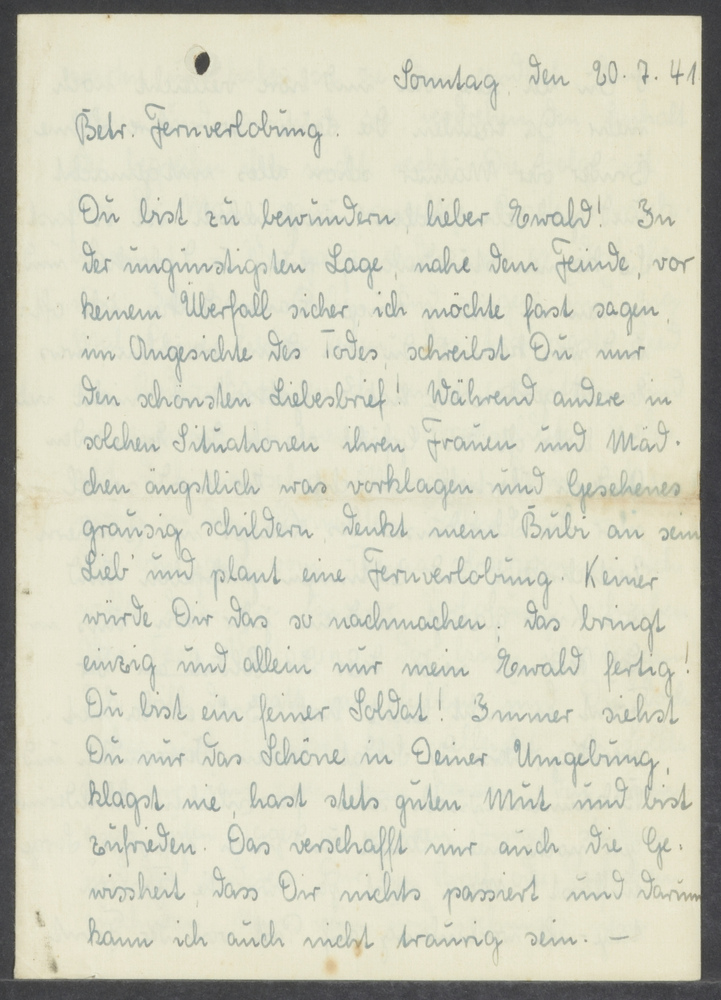 Sonntag den 20.7.41
Betr. Fernverlobung.
Du bist zu bewundern lieber Ewald! In
der ungünstigsten Lage nahe dem Feinde, vor
keinem Überfall sicher, ich möchte fast sagen,
im Angesichte des Todes, schreibst Du mir
den schönsten Liebesbrief! Während andere in
solchen Situationen ihren Frauen und Mäd-
chen ängstlich was vorklagen und Gesehenes
grausig schildern, denkt mein Bubi an sein
Lieb und plant eine Fernverlobung. Keiner
würde Dir das so nachmachen, das bringt
einzig und allein nur mein Ewald fertig!
Du bist ein feiner Soldat! Immer siehst
Du nur das Schöne in Deiner Umgebung,
klagst nie, hast stets guten Mut und bist
zufrieden. Das verschafft mir auch die Ge-
wissheit, dass Dir nichts passiert und darum
kann ich auch nicht traurig sein. –